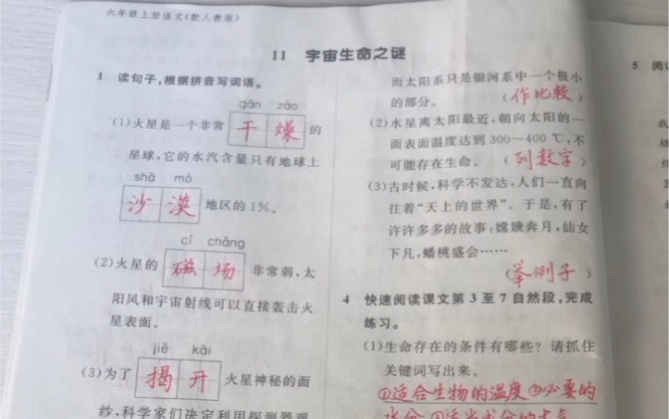 六年级上册语文(配人教版)
11 宇宙生命之谜
1 读句子,根据拼音写词语。
gān zào
(1)火星是一个非常 干 燥 的
星球,它的水汽含量只有地球上
shā mò
沙 漠 地区的1%。
cí chǎng
(2)火星的 磁 场 非常弱,太
阳风和宇宙射线可以直接轰击火
星表面。
jiē kāi
(3)为了 揭 开 火星神秘的面
纱,科学家们决定利用探测器观
而太阳系只是银河系中一个极小
的部分。 (作比较)
(2)水星离太阳最近,朝向太阳的一
面表面温度达到300~400 ℃,不
可能存在生命。 (列数字)
(3)古时候,科学不发达,人们一直向
往着“天上的世界”。于是,有了
许许多多的故事:嫦娥奔月,仙女
下凡,蟠桃盛会……
(举例子)
4 快速阅读课文第3至7自然段,完成
练习。
(1)生命存在的条件有哪些?请抓住
关键词写出来。
①适合生物的温度②必要的
5 阅